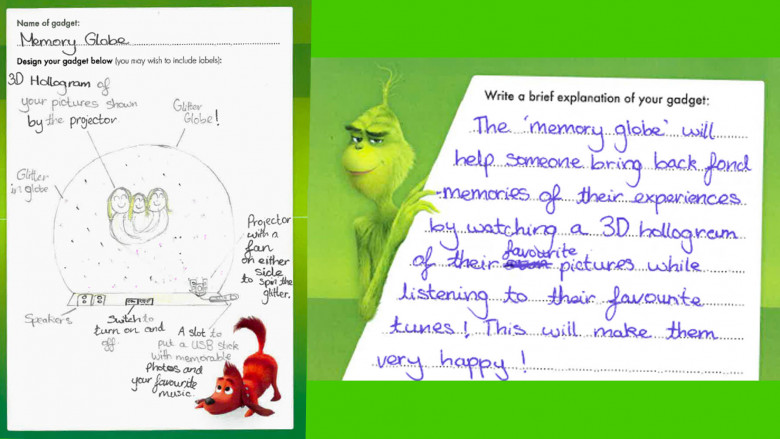 Name of gadget:
Memory Globe
Design your gadget below (you may wish to include labels):
3D Hollogram of
your pictures shown
by the projector
Glitter
Globe!
Glitter
in globe
Projector
with a
fan
on either
side
to spin the
glitter.
Speakers
Switch to
turn on and
off
A slot to
put a USB stick
with memorable
photos and
your favourite
music.
Write a brief explanation of your gadget:
The 'memory globe' will
help someone bring back fond
memories of their experiences
by watching a 3D hollogram
of their favourite pictures while
listening to their favourite
tunes! This will make them
very happy!